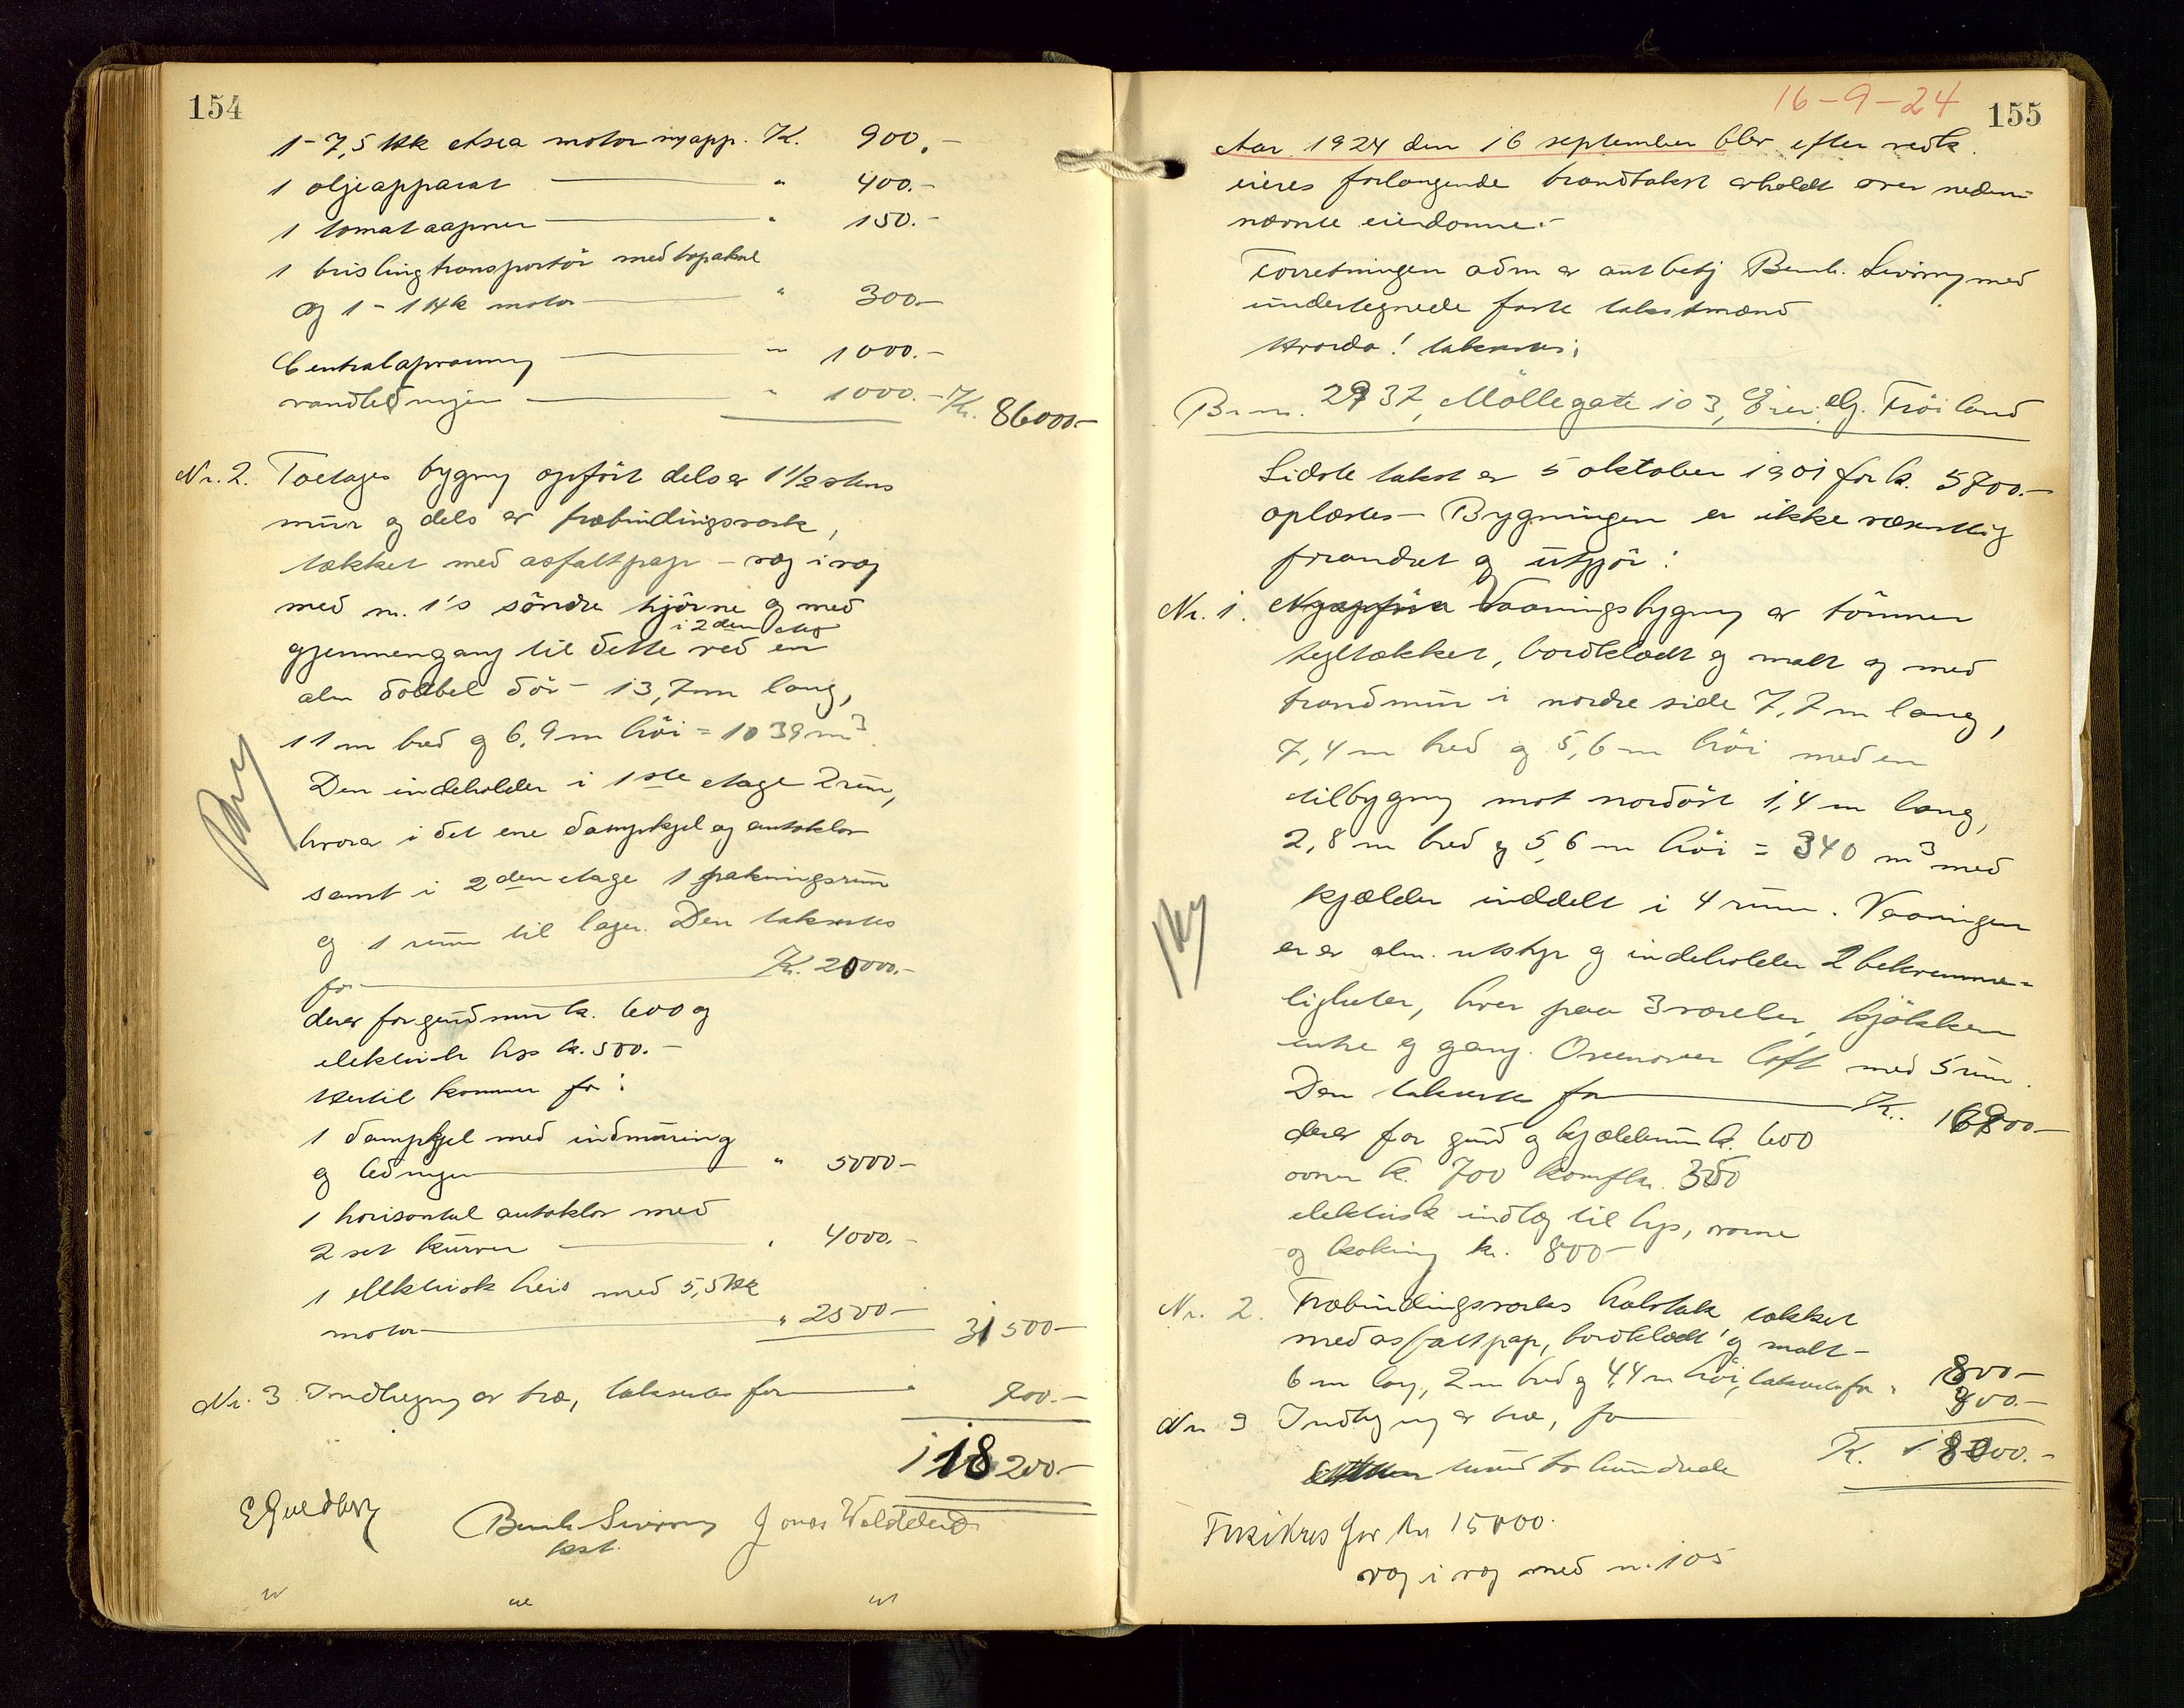 154
1 - 7,5 Hk Asea motor m/app. K. 900.-
1 oljeapparat " 400.-
1 tomataapner " 150.-
1 brislingtransportör med
og 1 - 1 Hk motor " 300.-
Centralopvarmning " 1000.-
vandledninger " 1000.- Kr. 86000.-
Nr. 2. Toetages bygning opfört dels av 1 1/2 stens
mur og dels av træbindingsverk,
tækket med asfaltpap - væg i væg
med nr. 1's söndre hjörne og med
i 2den etg
gjennemgang til dette ved en
alm dobbel dör - 13,7 m lang,
11 m bred og 6,9 m höi = 1039 m3.
Den indeholder i 1ste etage 2 rum,
hvorav i det ene dampkjel og autoklav
samt i 2den etage 1 pakningsrum
og 1 rum til lager. Den takseres
for Kr. 20000.-
derav for grundmur k. 600 og
elektrisk lys k. 500.-
Hertil kommer for:
1 dampkjel med indmuring
og ledninger " 5000-
1 horisontal autoklav med
2 set kurver " 4000.-
1 elektrisk heis med 5,5 Hk
motor " 2500- 31500-
Nr. 3 Indhegning av træ, takseres for " 700.-
118200-
E Guldberg Bernh. Sivring Jonas Waldeland
kst.
155
16-9-24
Aar 1924 den 16 september blev efter vedk.
eieres forlangende brandtakst avholdt over neden-
nævnte eiendomme.-
Forretningen adm av aut betj Bernh. Sivring med
undertegnede faste takstmænd
Hvorda! takseres;
Br nr. 2937, Möllegate 103, Eier: Frøiland
Sidste takst av 5 oktober 1901 for k. 5700.-
oplæstes - Bygningen er ikke væsentlig
forandret og utgjör:
Nr. 1. Nyopført Vaaningsbygning av tömmer
tegltækket, bordklædt og malt og med
brandmur i nordre side 7,7 m lang,
7,4 m bred og 5,6 m höi med en
tilbygning mot nordöst 1,4 m lang,
2,8 m bred og 5,6 m höi = 340 m3 med
kjælder inddelt i 4 rum. Vaaningen
er av alm. utstyr og indeholder 2 bekvemme-
ligheter, hver paa 3 værelser, kjökken
entre og gang. Ovenover loft med 5 rum.
Den takseres for K. 16900-
derav for grund og kjældermur k. 600
ovner k. 700 komfkr. 350
elektrisk indlæg til lys, varme
og koking k. 800-
Nr. 2. Træbindingsverks halvtak, tækket
med asfaltpap, bordklædt og malt -
6 m lang, 2 m bred og 4,4 m höi, takseres for " 800-
Nr 3 Indhegning av træ, for 300.-
tusind to hundrede K. 18000.-
Forsikres for kr 15000.
væg i væg med nr. 105